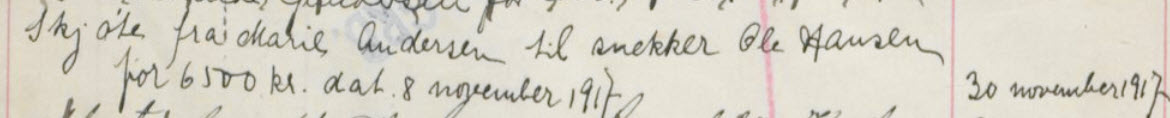 Skjøte fra Marie Andersen til snekker Ole Hansen
for 6500 kr. dat. 8 november 1917
30 november 1917